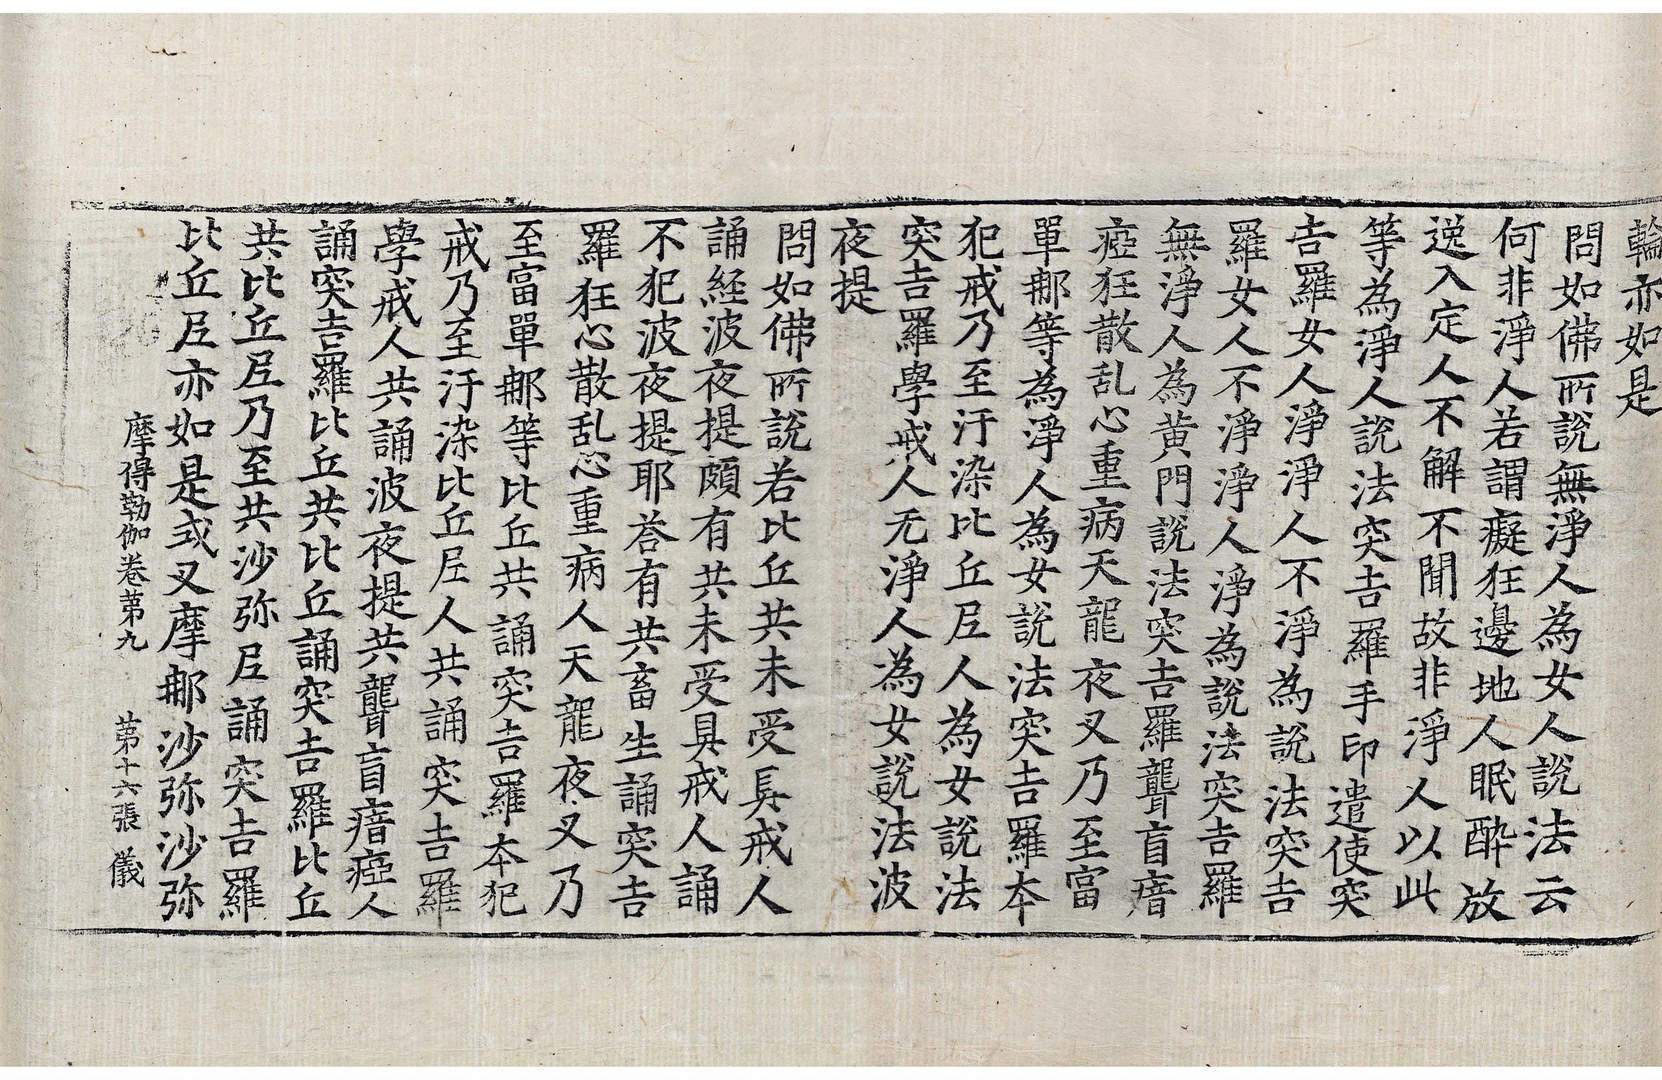 輪亦如是
問如佛所說無淨人為女人說法云
何非淨人若謂癡狂邊地人眠醉放
逸入定人不解不聞故非淨人以此
等為淨人說法突吉羅手印遣使突
吉羅女人淨淨人不淨為說法突吉
羅女人不淨淨人淨為說法突吉羅
無淨人為黃門說法突吉羅聾盲瘖
瘂狂散乱心重病天龍夜叉乃至富
單郍等為淨人為女說法突吉羅本
犯戒乃至汙染比丘尼人為女說法
突吉羅學戒人无淨人為女說法波
夜提
問如佛所說若比丘共未受具戒人
誦経波夜提頗有共未受具戒人誦
不犯波夜提耶荅有共畜生誦突吉
羅狂心散乱心重病人天龍夜叉乃
至富單郍等比丘共誦突吉羅本犯
戒乃至汙染比丘尼人共誦突吉羅
學戒人共誦波夜提共聾盲瘖瘂人
誦突吉羅比丘共比丘誦突吉羅比丘
共比丘尼乃至共沙弥尼誦突吉羅
比丘尼亦如是式叉摩郍沙弥沙弥
摩得勒伽卷苐九 苐十六張 儀